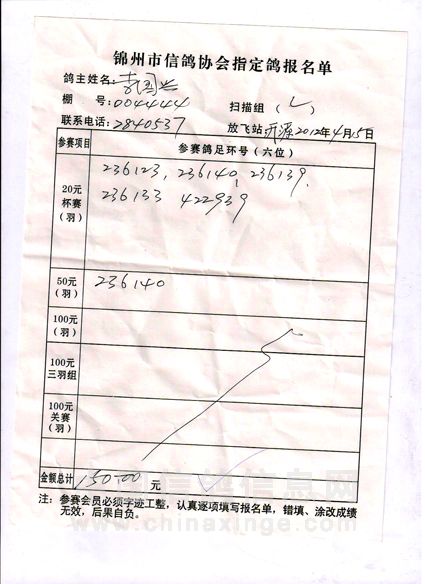 锦州市信鸽协会指定鸽报名单
鸽主姓名:李国兰
棚 号:004444 扫描组( )
联系电话:2840537 放飞站 沂源 2012年4月15日
参赛项目 参赛鸽足环号(六位)
20元杯赛(羽) 236123, 236140, 236139,
236133 422939
50元(羽) 236140
100元(羽)
100元三羽组
100元关赛(羽)
金额总计 150.00 元
注:参赛会员必须字迹工整,认真逐项填写报名单,错填、涂改成绩
无效,后果自负。
中国信鸽信息网
www.chinaxinge.com